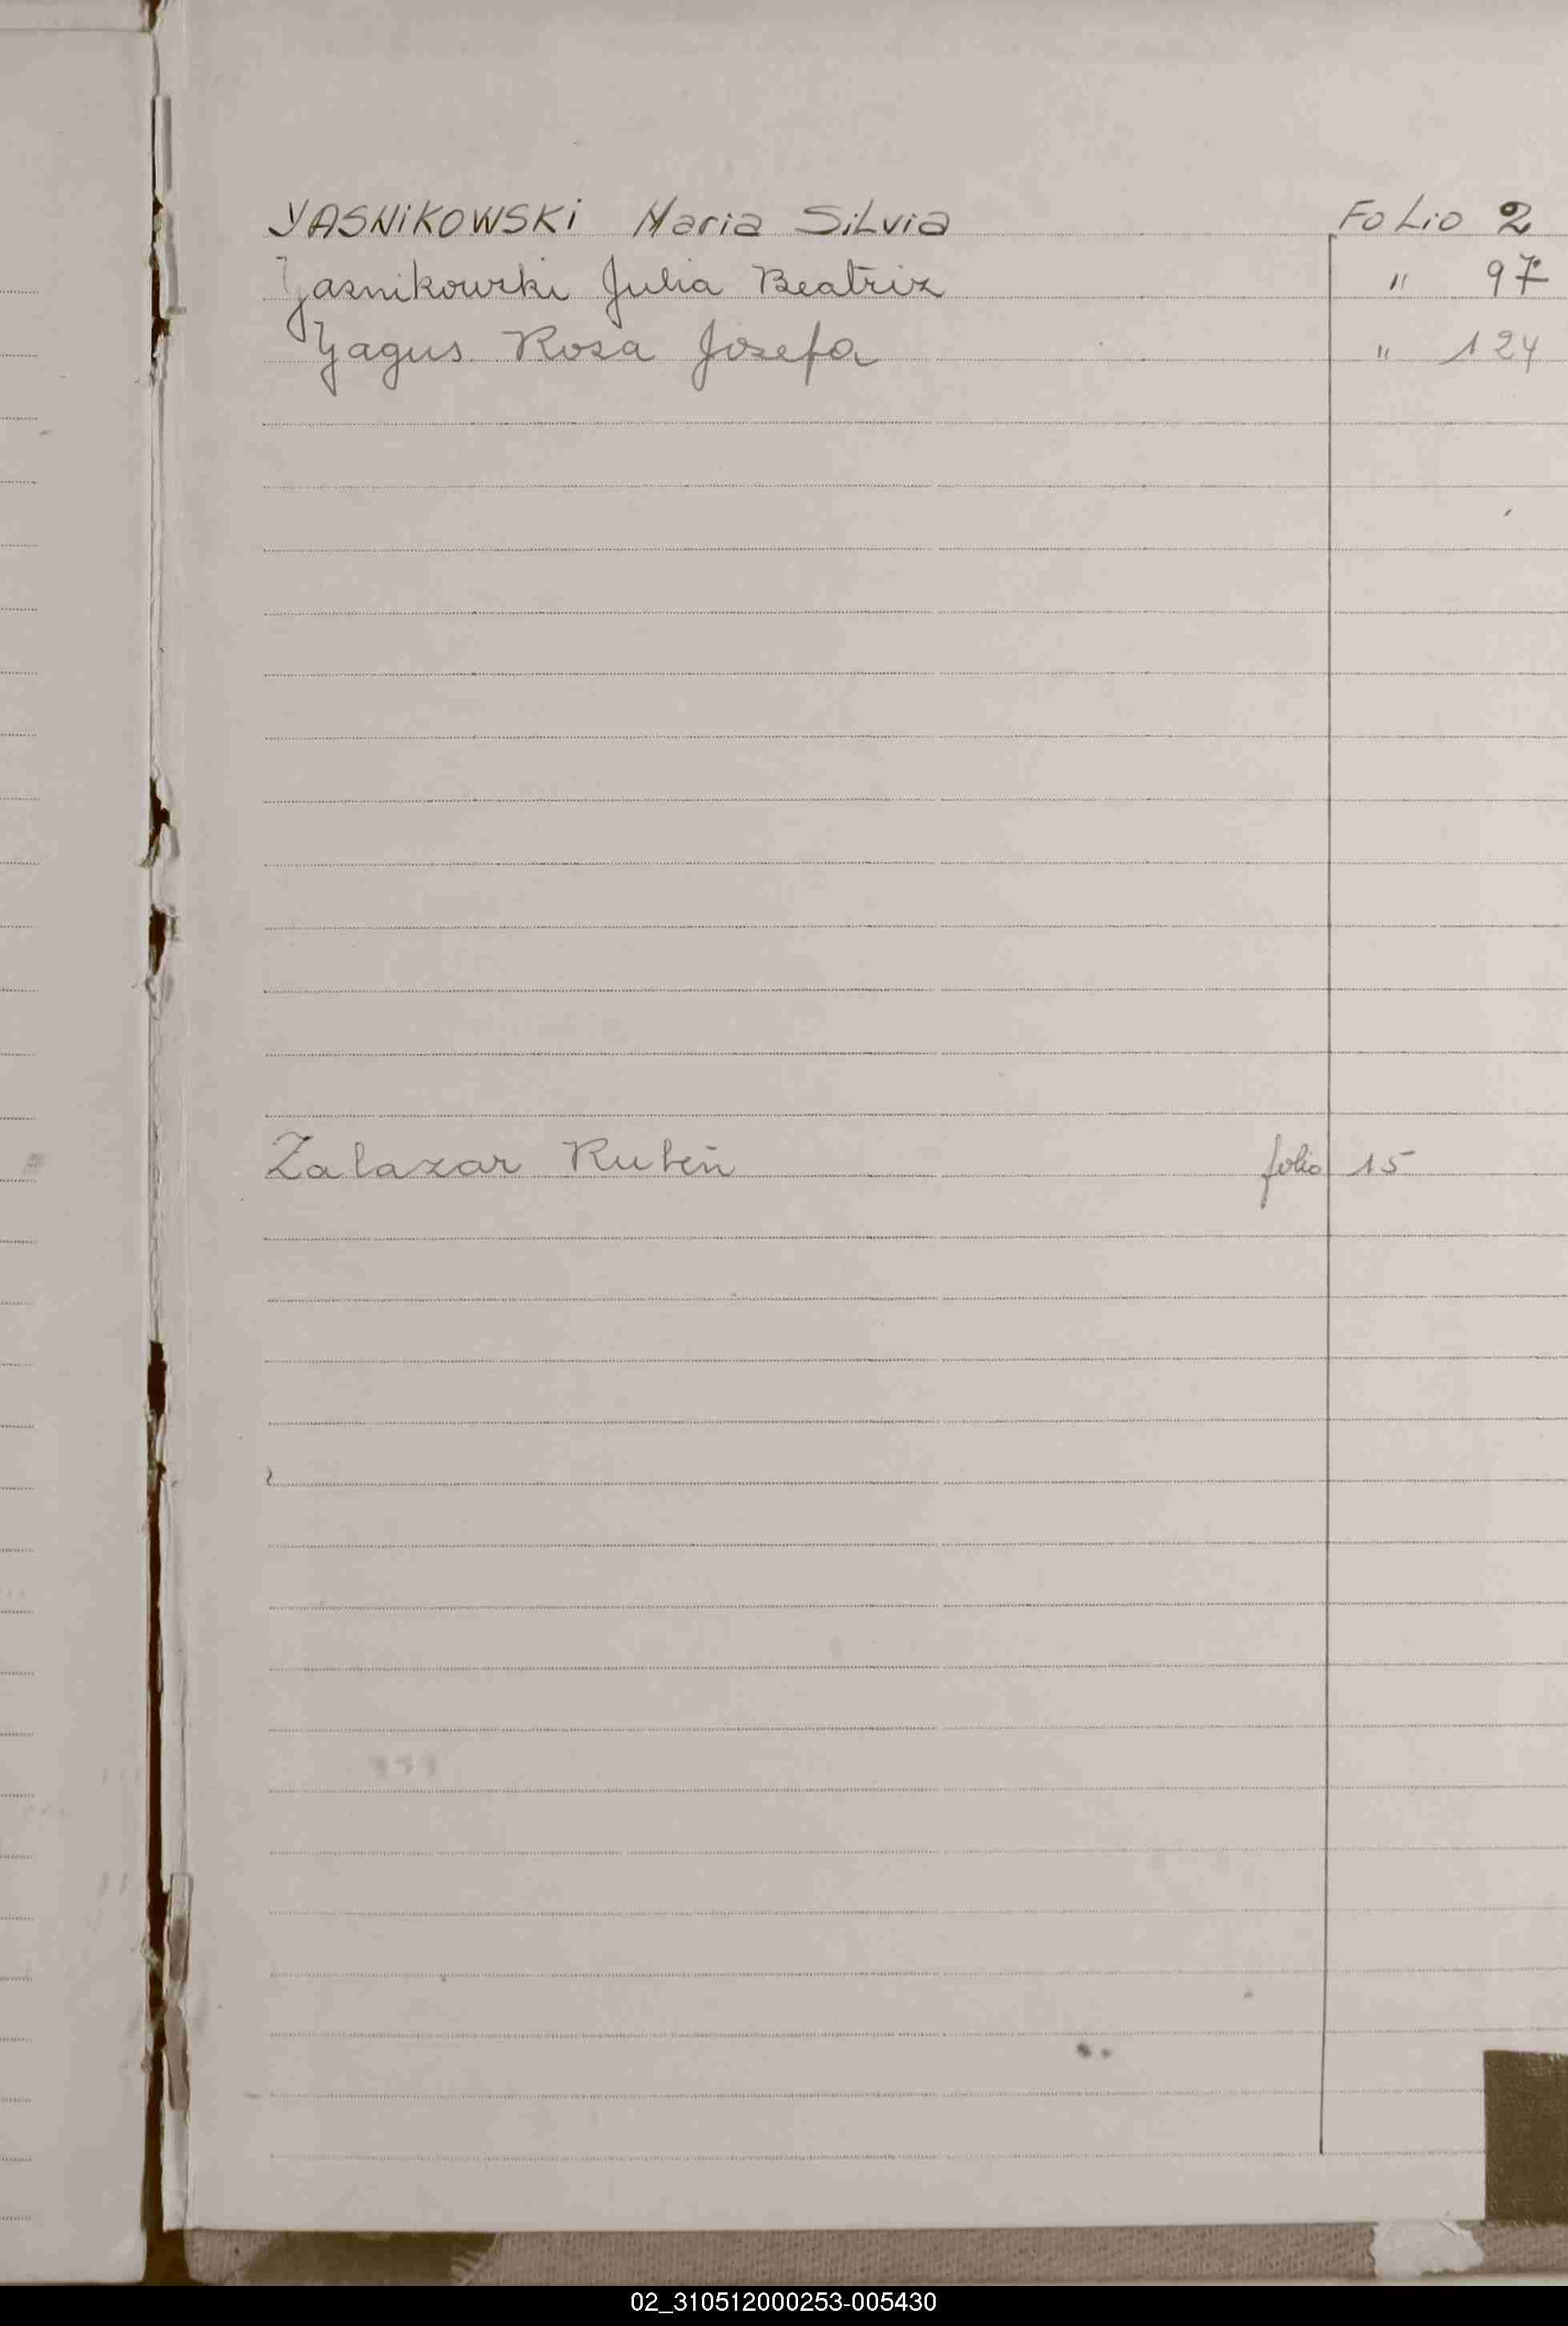 YASNIKOWSKI Maria Silvia Folio 2
Yasnikowski Julia Beatriz " 97
Yagus Rosa Josefa " 124
Zalazar Rubén folio 15
02_310512000253-005430